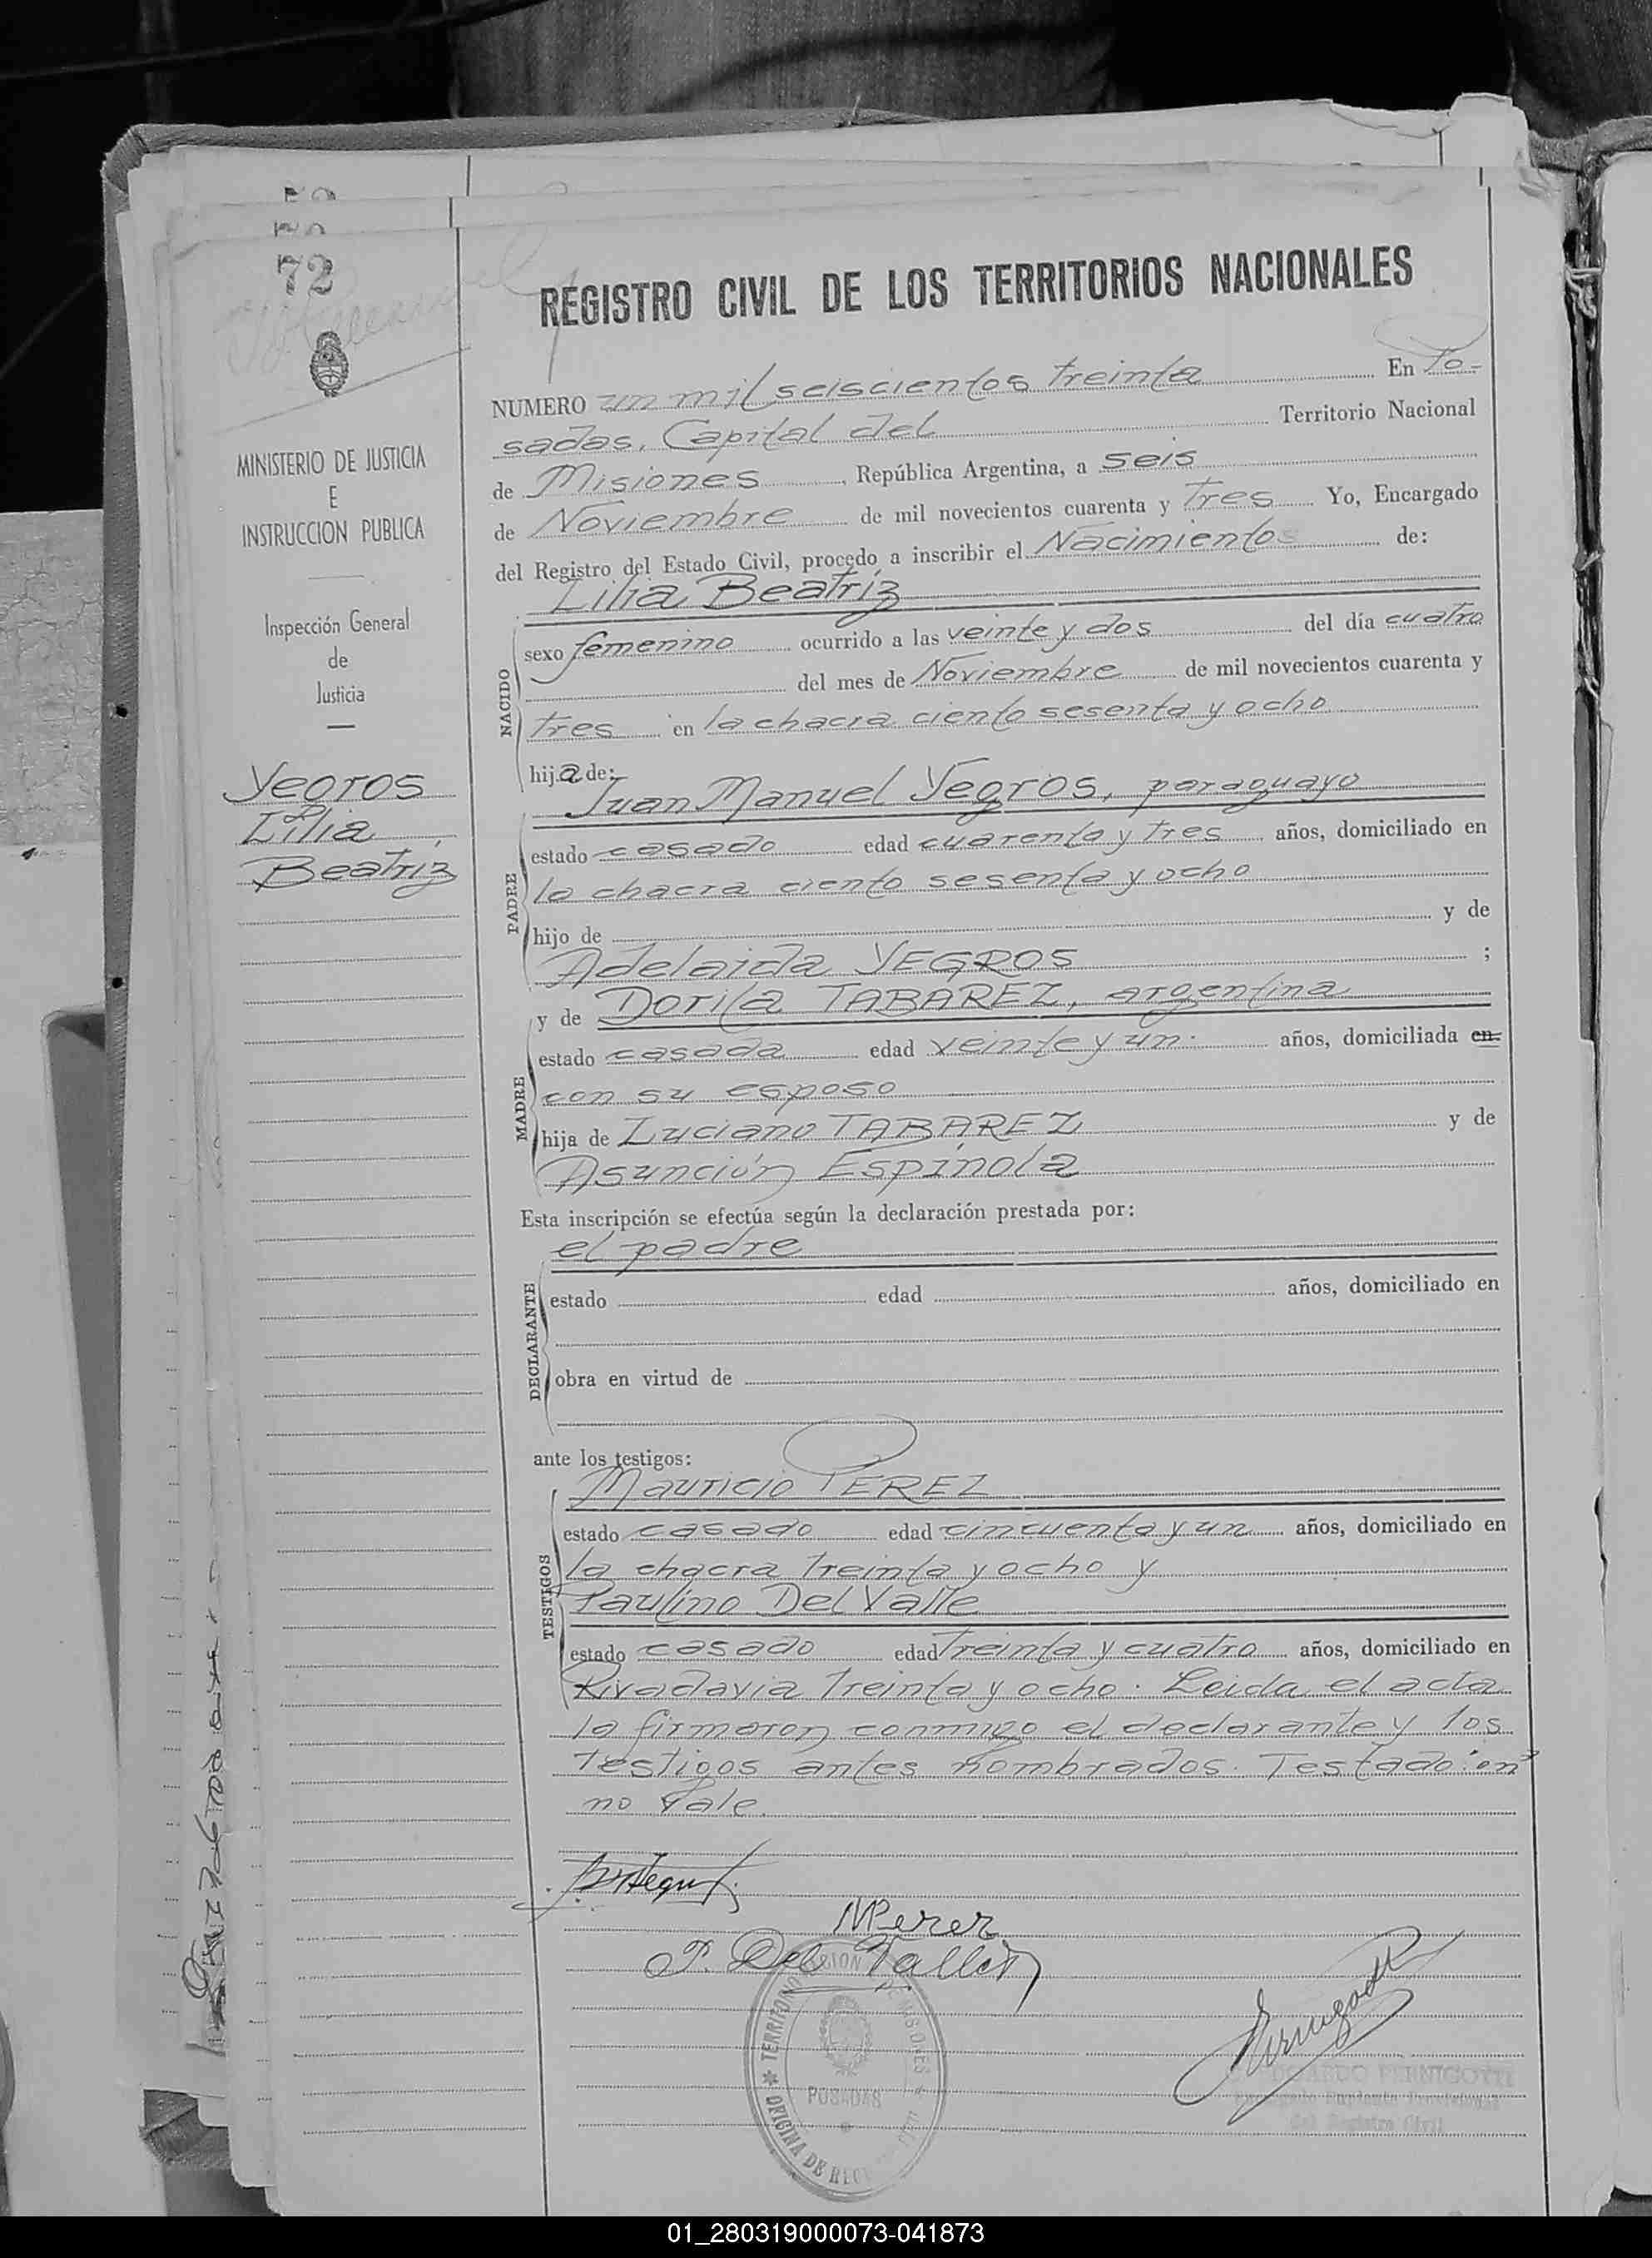 72
REGISTRO CIVIL DE LOS TERRITORIOS NACIONALES
MINISTERIO DE JUSTICIA
E
INSTRUCCION PUBLICA
Inspección General
de
Justicia
Yegros
Lilia
Beatriz
NUMERO un mil seiscientos treinta En Po-
sadas, Capital del Territorio Nacional
de Misiones, República Argentina, a seis
de Noviembre de mil novecientos cuarenta y tres Yo, Encargado
del Registro del Estado Civil, procedo a inscribir el Nacimiento de:
Lilia Beatriz
NACIDO
sexo femenino ocurrido a las veinte y dos del día cuatro
del mes de Noviembre de mil novecientos cuarenta y
tres en la chacra ciento sesenta y ocho
hija de:
Juan Manuel Yegros, paraguayo
PADRE
estado casado edad cuarenta y tres años, domiciliado en
la chacra ciento sesenta y ocho
hijo de y de
Adelaida YEGROS ;
y de Dorila TABAREZ, argentina
MADRE
estado casada edad veinte y un. años, domiciliada en
con su esposo
hija de Luciano TABAREZ y de
Asunción Espínola
Esta inscripción se efectúa según la declaración prestada por:
el padre
DECLARANTE
estado edad años, domiciliado en
obra en virtud de
ante los testigos:
Mauricio PEREZ
TESTIGOS
estado casado edad cincuenta y un años, domiciliado en
la chacra treinta y ocho y
Paulino Del Valle
estado casado edad treinta y cuatro años, domiciliado en
Rivadavia treinta y ocho. Leida el acta
la firmaron conmigo el declarante y los
testigos antes nombrados. Testado: "en"
no vale.
MPerez
P. Del Valle
TERRITORIO
MISIONES
POSADAS
OFICINA DE
EDUARDO PERNIGOTTI
Encargado Suplente Provisional
del Registro Civil
01_280319000073-041873